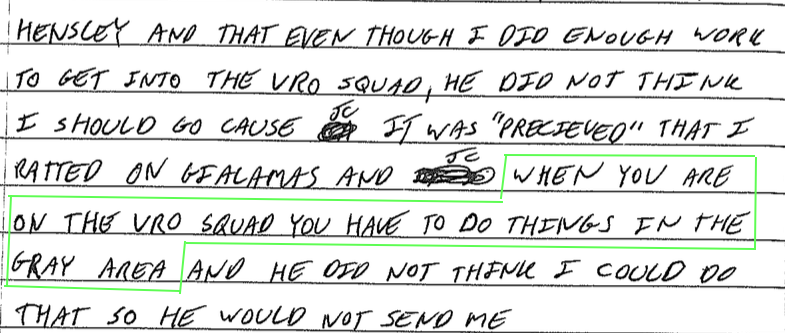 HENSLEY AND THAT EVEN THOUGH I DID ENOUGH WORK
TO GET INTO THE VRO SQUAD, HE DID NOT THINK
I SHOULD GO CAUSE JC IT WAS "PRECIEVED" THAT I
RATTED ON GIALAMAS AND JC WHEN YOU ARE
ON THE VRO SQUAD YOU HAVE TO DO THINGS IN THE
GRAY AREA AND HE DID NOT THINK I COULD DO
THAT SO HE WOULD NOT SEND ME